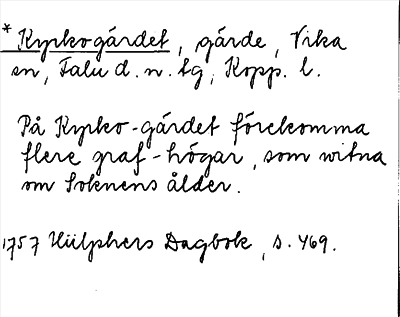 * Kyrkogärdet, gärde, Vika
sn, Falu d. n. tg, Kopp. l.
På Kyrko-gärdet förekomma
flere graf-högar, som witna
om Soknens ålder.
1757 Hülphers Dagbok, s. 469.